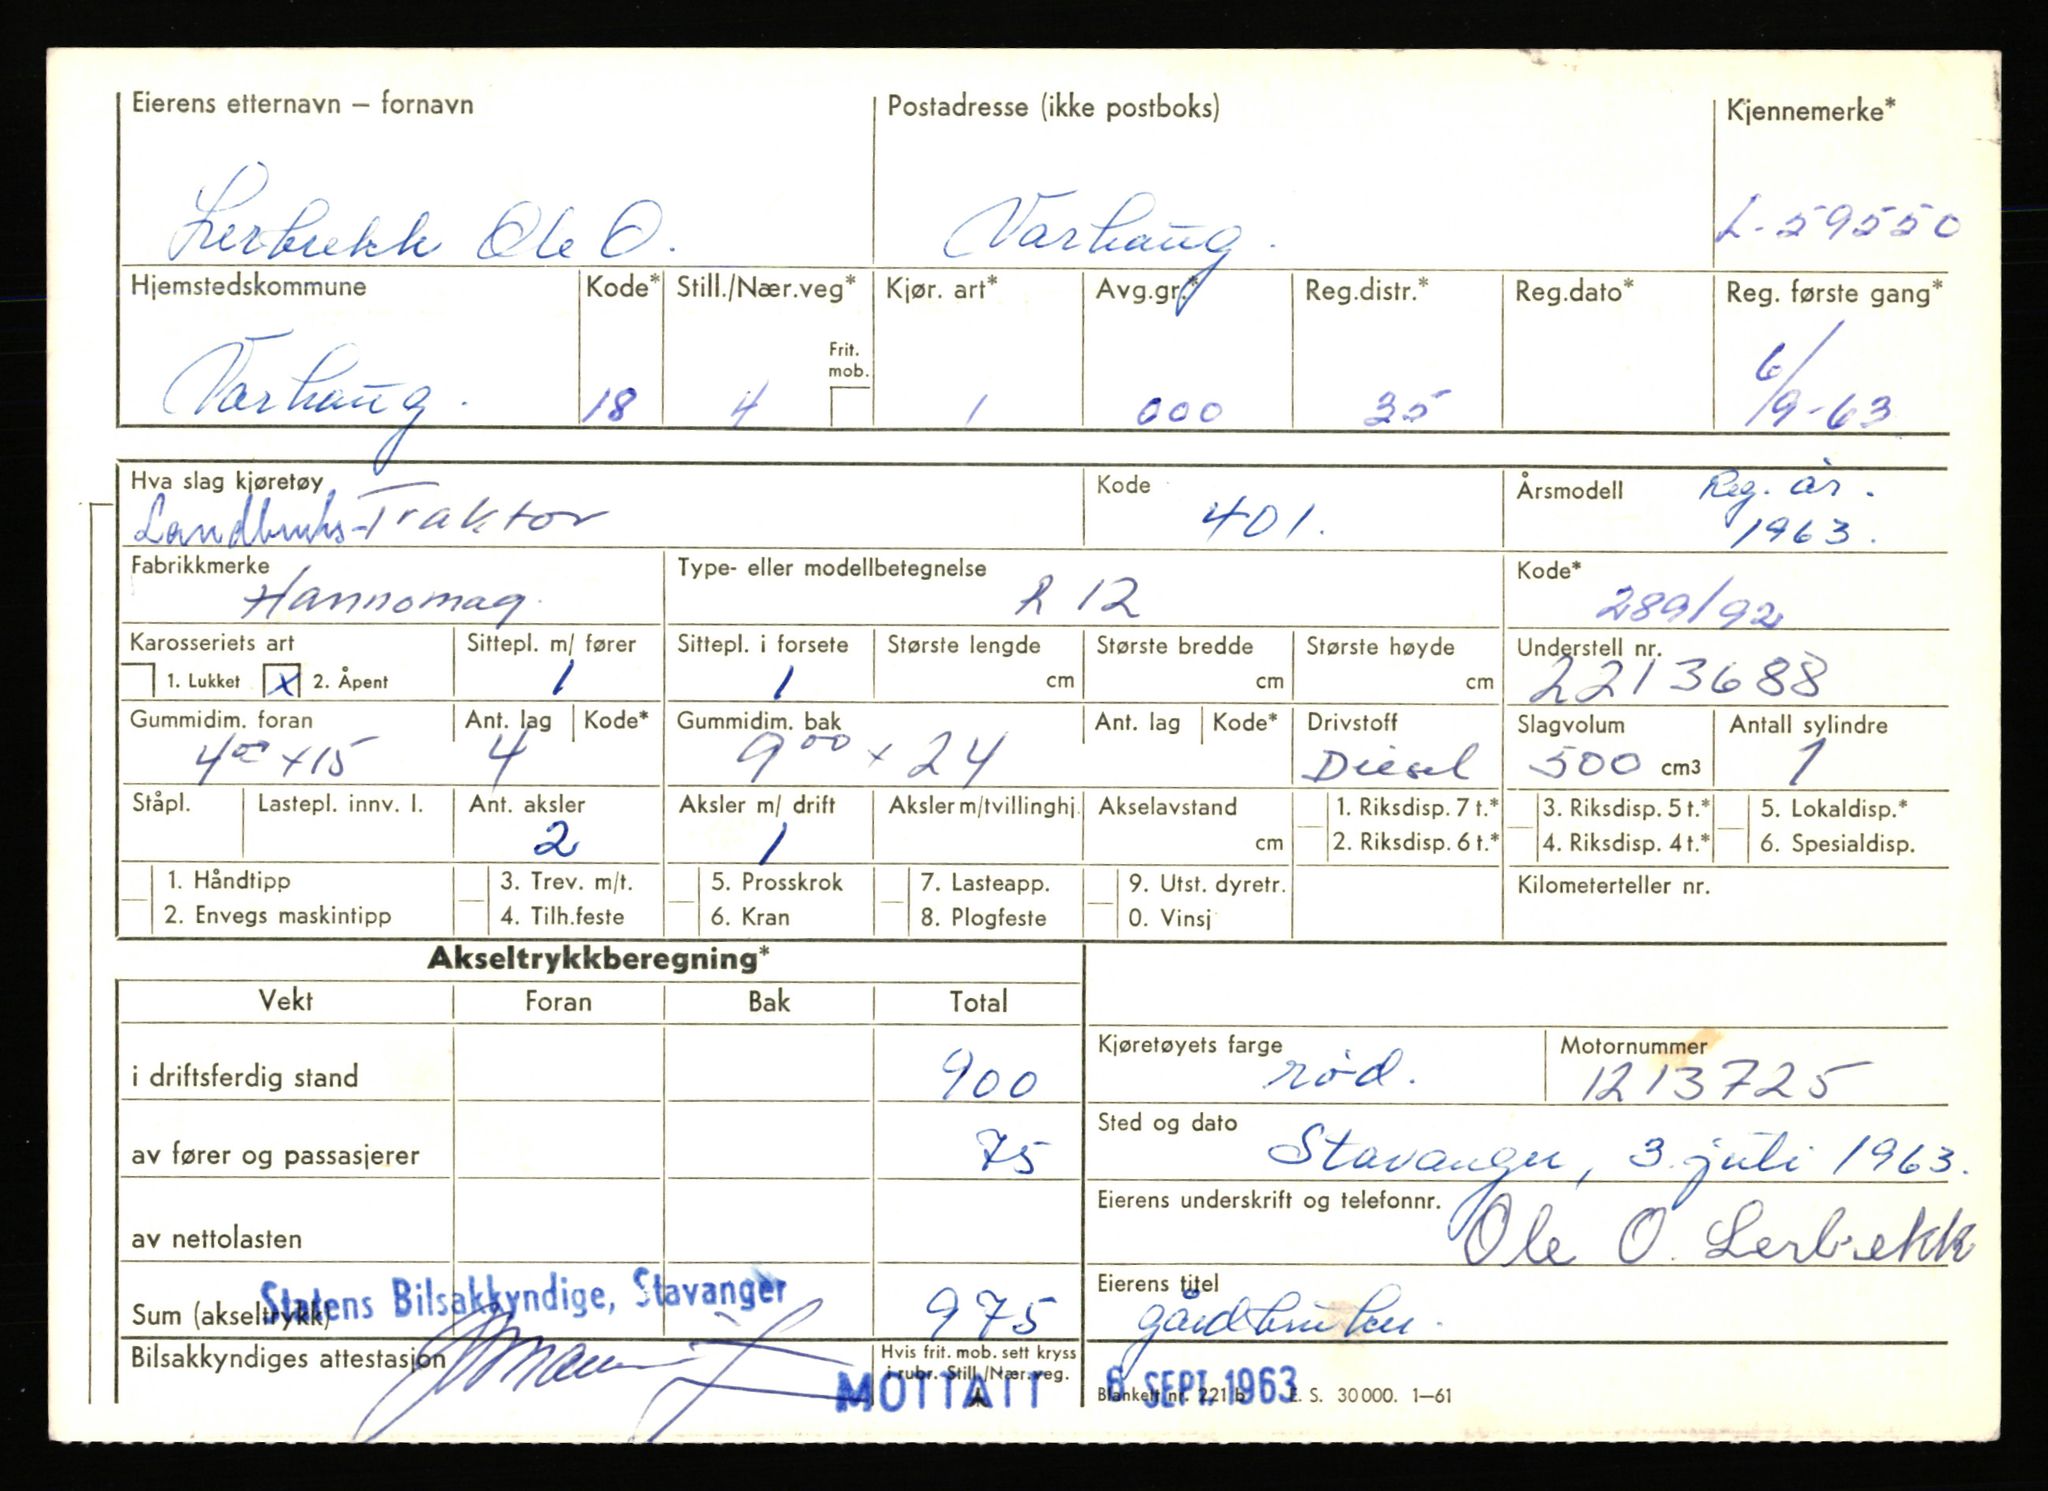 Eierens etternavn – fornavn Postadresse (ikke postboks) Kjennemerke*
Lerbrekk Ole O. Varhaug. L-59550
Hjemstedskommune Kode* Still./Nær.veg* Kjør. art* Avg.gr.* Reg.distr.* Reg.dato* Reg. første gang*
Frit. mob.
Varhaug. 18 4 1 000 35 6/9-63
Hva slag kjøretøy Kode Årsmodell Reg. år.
Landbruks-Traktor 401. 1963.
Fabrikkmerke Type- eller modellbetegnelse Kode*
Hannomag. R 12 289/92
Karosseriets art Sittepl. m/ fører Sittepl. i forsete Største lengde Største bredde Største høyde Understell nr.
1. Lukket X 2. Åpent 1 1 cm cm cm 2213688
Gummidim. foran Ant. lag Kode* Gummidim. bak Ant. lag Kode* Drivstoff Slagvolum Antall sylindre
4 00 x 15 4 9 00 x 24 Diesel 500 cm3 1
Ståpl. Lastepl. innv. l. Ant. aksler Aksler m/ drift Aksler m/tvillinghj. Akselavstand 1. Riksdisp. 7 t.* 3. Riksdisp. 5 t.* 5. Lokaldisp.*
2 1 cm 2. Riksdisp. 6 t.* 4. Riksdisp. 4 t.* 6. Spesialdisp.
1. Håndtipp 3. Trev. m/t. 5. Prosskrok 7. Lasteapp. 9. Utst. dyretr. Kilometerteller nr.
2. Envegs maskintipp 4. Tilh.feste 6. Kran 8. Plogfeste 0. Vinsj
Akseltrykkberegning*
Vekt Foran Bak Total
i driftsferdig stand 900
Kjøretøyets farge Motornummer
rød. 1213725
av fører og passasjerer 75
Sted og dato
Stavanger, 3. juli 1963.
av nettolasten
Eierens underskrift og telefonnr.
Ole O. Lerbrekk
Sum (akseltrykk) 975
Statens Bilsakkyndige, Stavanger
Eierens titel
gårdbruker.
Bilsakkyndiges attestasjon
Hvis frit. mob. sett kryss
i rubr. Still./Nær.veg.
MOTTATT 6 SEPT. 1963
Blankett nr. 221 b E. S. 30 000. 1–61